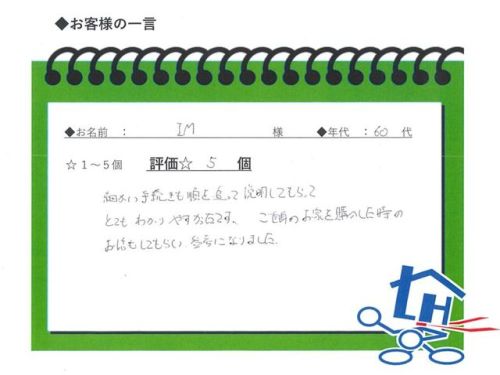 ◆お客様の一言
◆お名前 : IM 様 ◆年代 : 60 代
☆1～5個 評価☆ 5 個
細かい手続きも順を追って説明してもらって
とてもわかりやすかったです。ご自身のお家を購入した時の
お話もしてもらい参考になりました。
LH